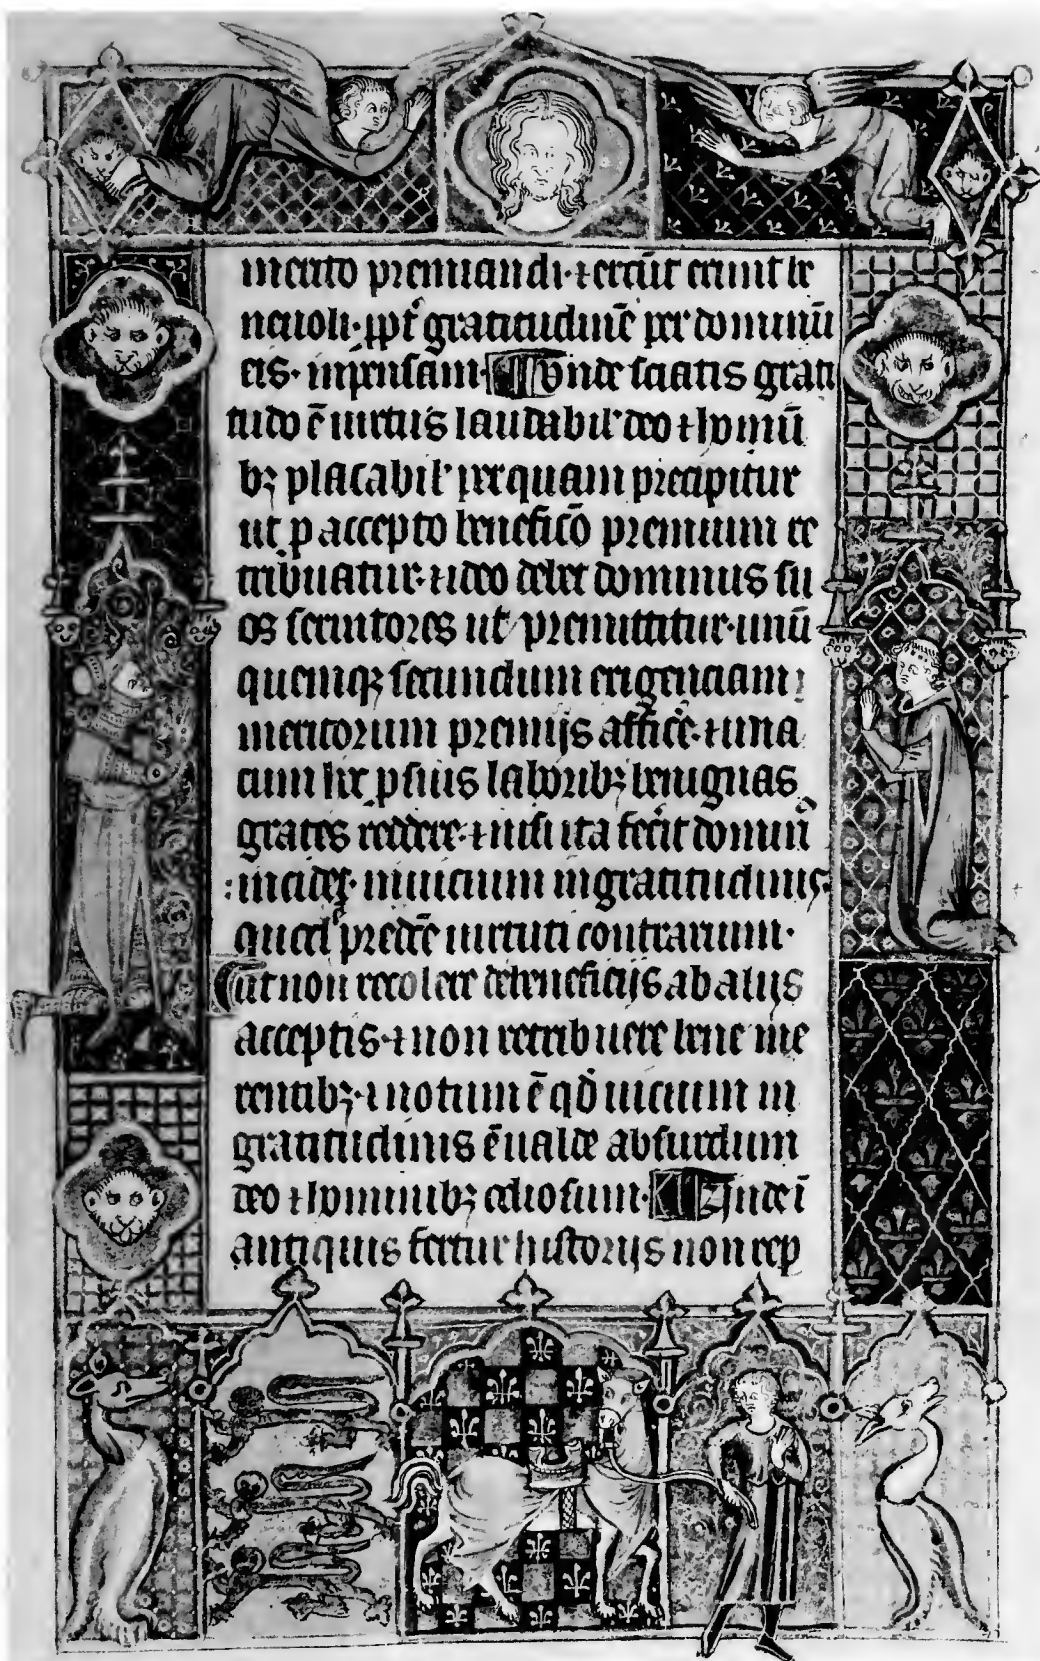 merito premiandi · ⁊ certū erunt be
neuoli · ꝓpt gratitudinē per dominū
eis · inpensam · Unde sciatis grati
tudo ē uirtus laudabil' deo ⁊ homī
bꝫ placabil' per quam precipitur
ut p accepto beneficō premium re
tribuatur · ⁊ ideo debet dominus su
os seruitores ut premittitur · unū
quemqꝫ secundum exigenciam
meritorum premijs afficē · ⁊ una
cum hic p suis laboribꝫ benignas
grates reddere · ⁊ nisi ita fecit domin'
incidet · in uicium ingratitudinis ·
quod predcē uirtuti contrarium ·
Est non recolere de beneficijs ab alijs
acceptis · ⁊ non retribuere bene me
rentibꝫ · ⁊ notum ē qd uicium in
gratitudinis ē ualde absurdum
deo ⁊ hominibꝫ odiosum · Unde ī
antiquis fertur historijs non rep